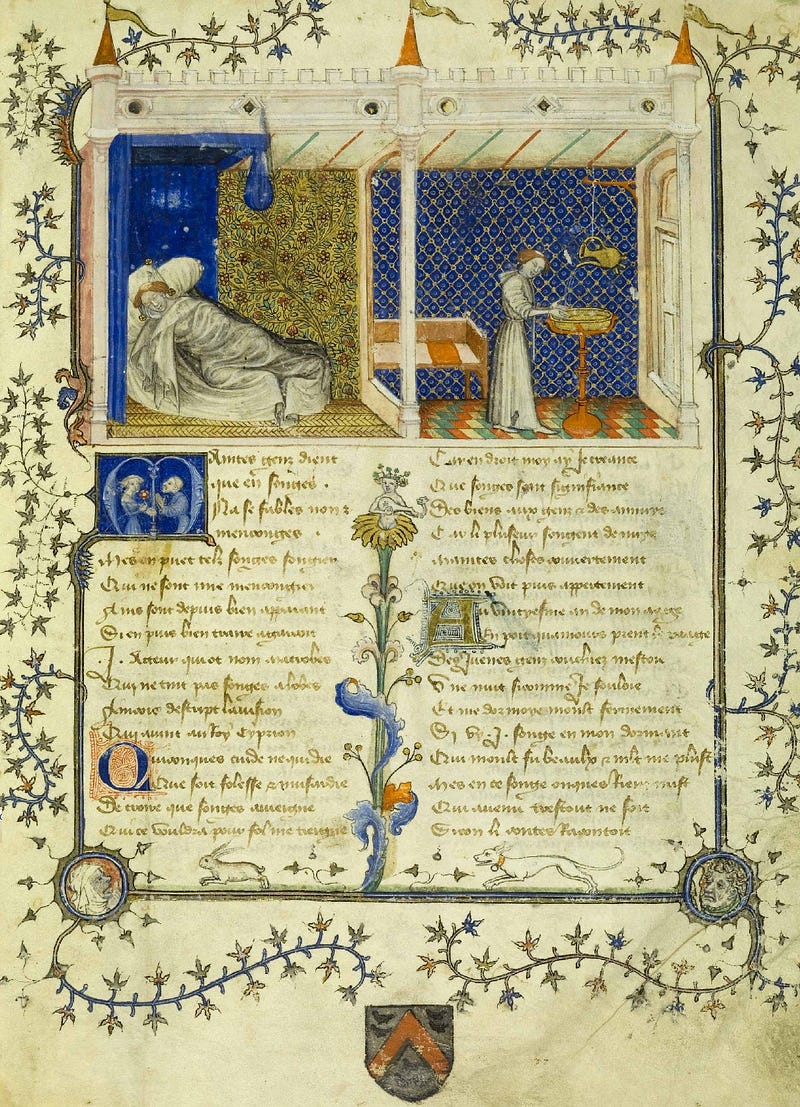 Maintes genz dient
que en songes .
Na se fables non &
mencouges
Mes en puet telz songes songier
Qui ne sont mie mencongier
Ains sont depuis bien apparant
Si en puis bien traire agarant
.I. Acteur qui ot nom macrobes
Qui ne tint pas songes a lobes
Aincois descript la vision
Qui auint au Roy Cyprion
Quiconques cuide ne qui die
Que soit folesse & musardie
De croire que songes auiegne
Qui ce vouldra pour fol me tiegne
Car en droit moy ay Je creance
Que songes sont signifiance
Des biens aux genz & des anuiz
Car li pluseur songent de nuiz
Maintes choses couuertement
Que on voit puis appertement
Au vintyesme an de mon aage
En point quamours prent le paage
Des Juenes genz couchiez mestoie
Vne nuit si comme Je souloie
Et me dormoye moult forment
Si vy .I. songe en mon dormant
Qui moult fu beaulx & mlt me plust
Mes en ce songe onques Riens
Qui auenu trestout ne soit
Si con li contes Racontoit